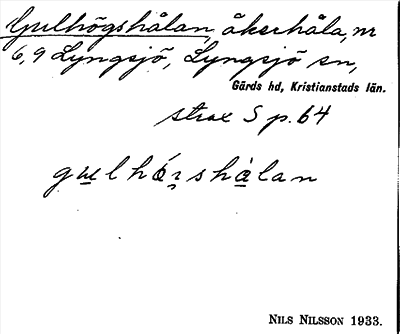 Gulhögshålan, åkerhåla, nr
6,9 Lyngsjö, Lyngsjö sn,
Gärds hd, Kristianstads län.
strax S p. 64
NILS NILSSON 1933.